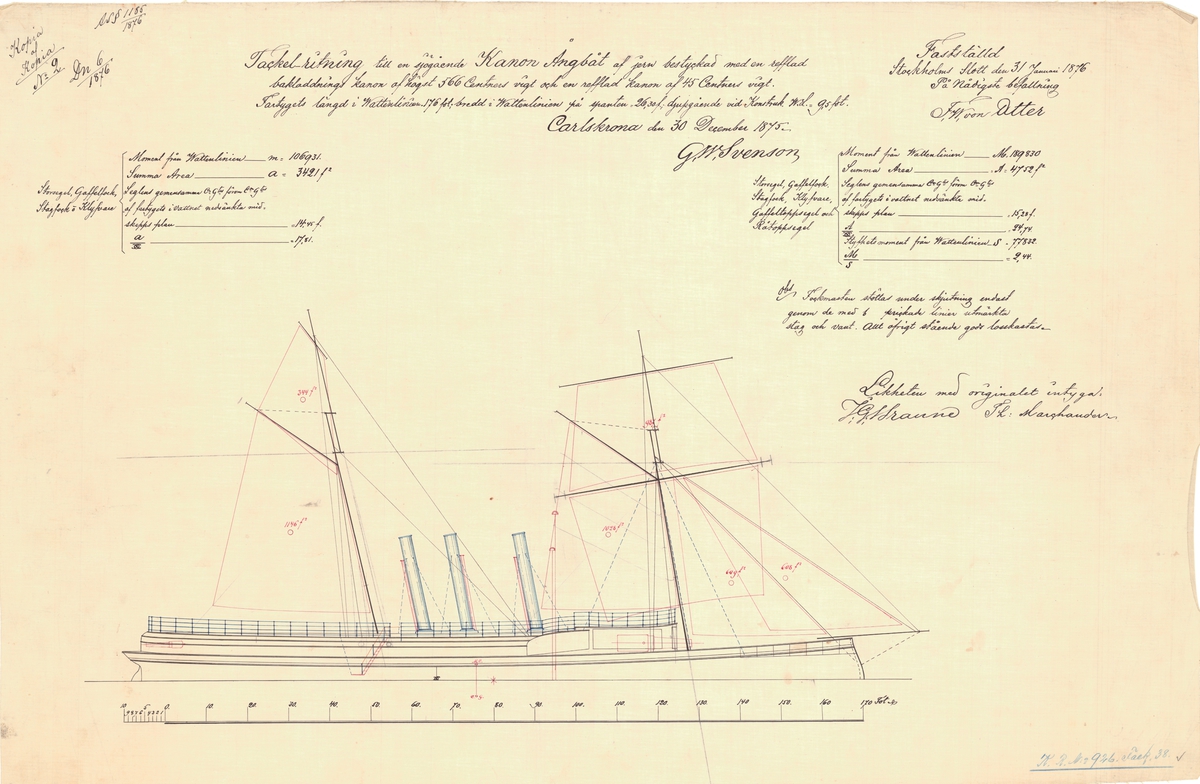 1185
1876
Kopia
af
Kopia
№ 2
Dn 6
1876
Tackel-ritning till en sjögående Kanon Ångbåt af jern bestyckad med en refflad
bakladdningskanon af högst 566 Centners vigt och en refflad kanon af 45 Centners vigt.
Fartygets längd i Wattenlinien 176 fot, bredd i Wattenlinien på spanten 26,30 f, djupgående vid Konstruk W.L. 9,5 fot.
Carlskrona den 30 December 1875.
G.W. Svenson
Fastställd
Stockholms Slott den 31 Januari 1876
På Nådigste befallning
F.W. von Otter
Storsegel, Gaffelfock,
Stagfock o Klyfvare
Moment från Wattenlinien m = 106931.
Summa Area a = 3421 f²
Seglens gemensamma
af fartygets i vattnet nedsänkta mid-
skepps plan = 14,45 f.
a = 17,81.
Storsegel, Gaffelfock,
Stagfock, Klyfvare,
Gaffeltoppsegel och
Råtoppsegel
Moment från Wattenlinien M. 189830
Summa Area A. 4752 f²
Seglens gemensamma
af fartygets i vattnet nedsänkta mid-
skepps plan 15,28 f.
A 24,74
Styfhetsmoment från Wattenlinien S. 77832.
M = 2,44.
S
Obs! Fockmasten stöttas under skjutning endast
genom de med prickade linier utmärkta
stag och vant. Allt öfrigt stående gods losskastas.
Likheten med originalet intyga.
344 f²
1146 f²
649 f²
646 f²
10 9 8 7 6 5 4 3 2 1 0. 10. 20. 30. 40. 50. 60. 70. 80. 90. 100. 110. 120. 130. 140 150. 160 170 Fot
K. R. № 926. Tack. 38.